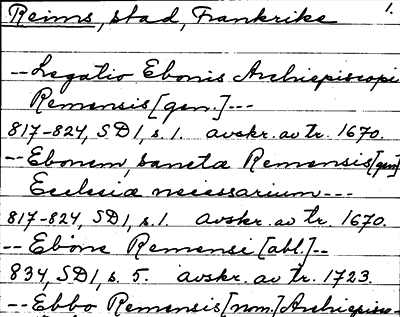 Reims, stad, Frankrike 1.
--Legatio Ebonis Archiepiscopi
Remensis [gen.]---
817-824, SD1, s. 1. avskr. av tr. 1670.
--Ebonem, sancta Remensis [gen]
Ecclesia necessarium---
817-824, SD1, s. 1. avskr. av tr. 1670.
--Ebone Remensi [abl.]--
834, SD1, s. 5. avskr. av tr. 1723.
--Ebbo Remensis [nom.] Archiepisco-